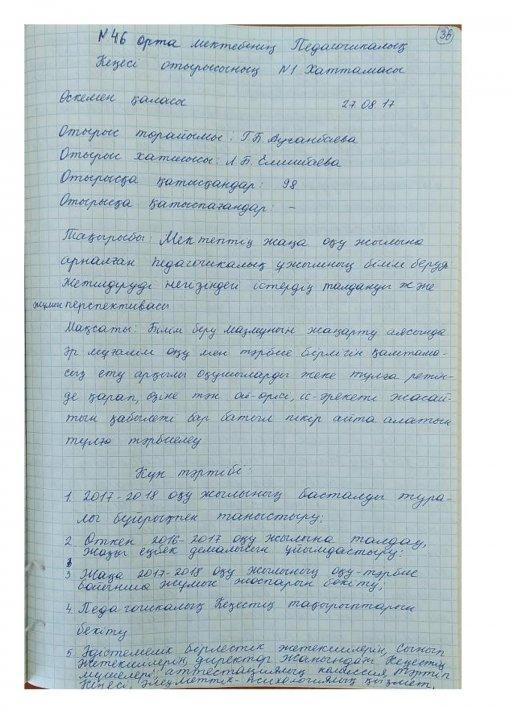 36
№46 орта мектебінің Педагогикалық
Кеңесі отырысының №1 Хаттамасы
Өскемен қаласы 27.08.17
Отырыс төрайымы: Г.Б Ауганбаева
Отырыс хатшысы: Л.Б.
Отырысқа қатысқандар: 98
Отырысқа қатыспағандар: -
Тақырыбы: Мектептің жаңа оқу жылына
арналған педагогикалық ұжымның білім беруде
жетілдіруді негізіндегі істердің талдануы және
жұмыс перспективасы
Мақсаты: Білім беру мазмұнын жаңарту аясында
әр мұғалім оқу мен тәрбие бірлігін қамтама-
сыз ету арқылы оқушыларды жеке тұлға ретін-
де қарап, өзіне тән ой-өрісі, іс-әрекеті жасай-
тын қабілеті бар батыл пікір айта алатын
тұлға тәрбиелеу
Күн тәртібі:
1. 2017-2018 оқу жылының басталды тура-
лы бұйрықпен таныстыру;
2 Өткен 2016-2017 оқу жылына талдау,
жазғы еңбек демалысын ұйымдастыру.
3 Жаңа 2017-2018 оқу жылының оқу-тәрбие
бойынша жұмыс жоспарын бекіту;
4. Педагогикалық Кеңестің тақырыптарын
бекіту
5. Әдістемелік бірлестік жетекшілерін, Сынып
Жетекшілерін, директор жанындағы Кеңестің
мүшелері, аттестациялық комиссия, Тәртіп
Кеңесі, әлеуметтік-психологиялық қызмет,